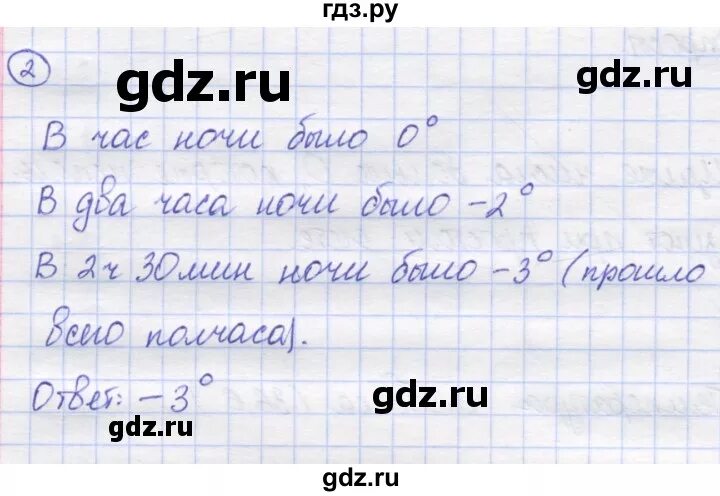 гдз.ру
2
gdz.ru
gdz.ru
В час ночи было 0°
В два часа ночи было -2°
В 2ч 30мин ночи было -3° (прошло
всего полчаса).
Ответ: -3°
gdz.ru
gdz.ru
gdz.ru